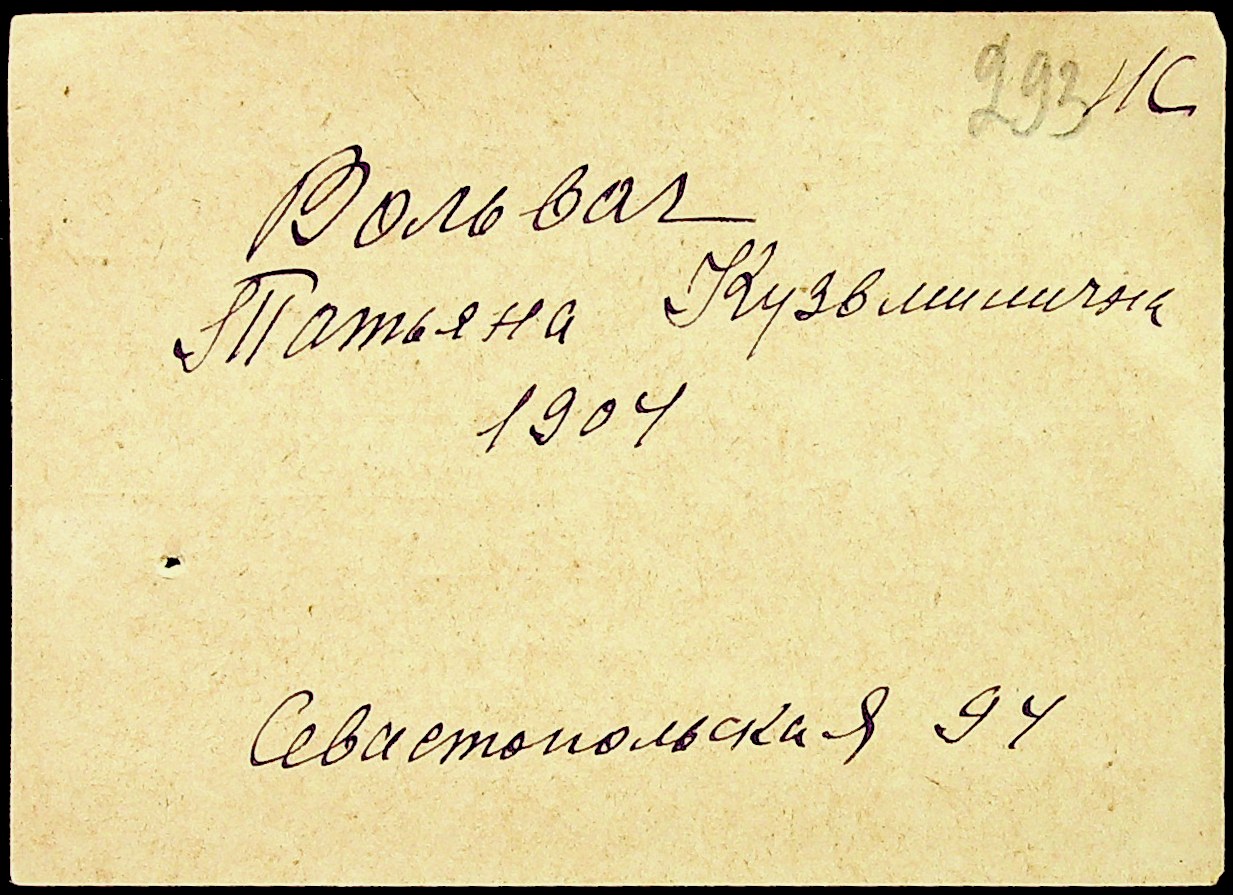 293 НС
Вольвач
Татьяна Кузьминична
1904
Севастопольская 94